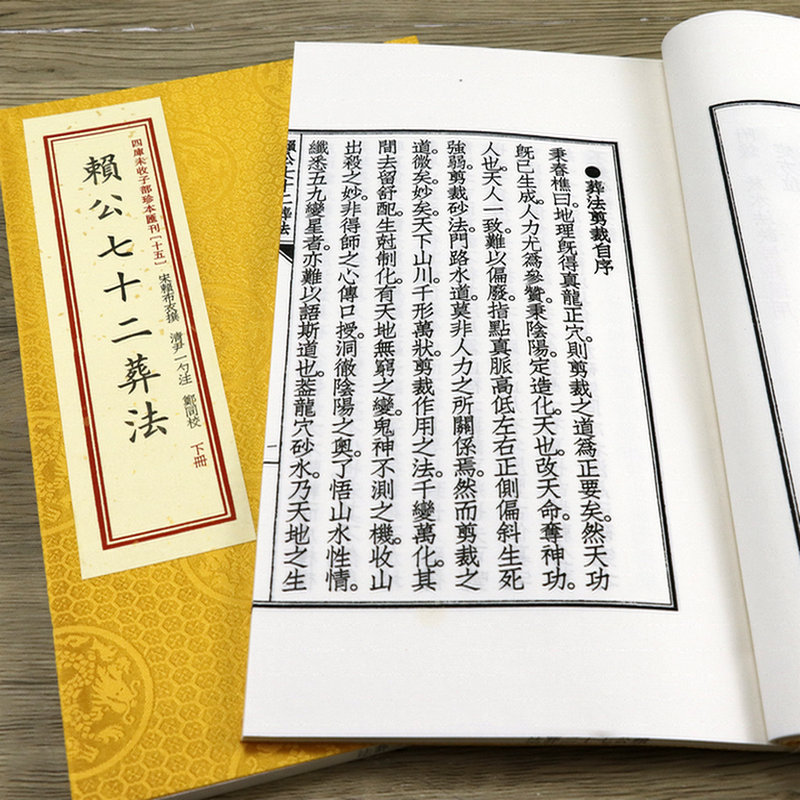 四庫未收子部珍本匯刊［十五］
賴公七十二葬法
宋賴布衣撰 清尹一勺注 鄭同校 下冊
●葬法剪裁自序
秉春樵曰。地理旣得真龍正穴。則剪裁之道為正要矣。然天功
旣已生成。人力尤為參贊。秉陰陽。定造化。天也。改天命。奪神功。
人也。天人一致。難以偏廢。指點真脈高低左右正側偏斜生死
強弱。剪裁砂法。門路水道。莫非人力之所關係焉。然而剪裁之
道。微矣。妙矣。天下山川。千形萬狀。剪裁作用之法。千變萬化。其
間去留舒配。生尅制化。有天地無窮之變。鬼神不測之機。收山
出殺之妙。非得師之心傳口授。洞徹陰陽之奧。了悟山水性情。
纖悉五九變星者。亦難以語斯道也。葢龍穴砂水。乃天地之生
賴公七十二葬法
二